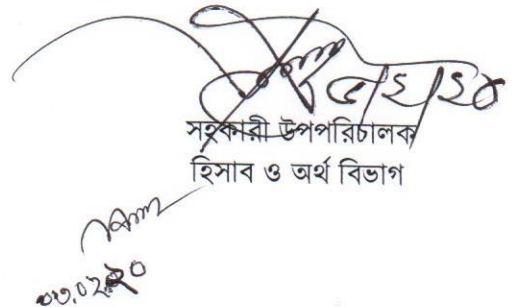 ৫/২/২০
সহকারী উপপরিচালক
হিসাব ও অর্থ বিভাগ
০৩.০২.২০